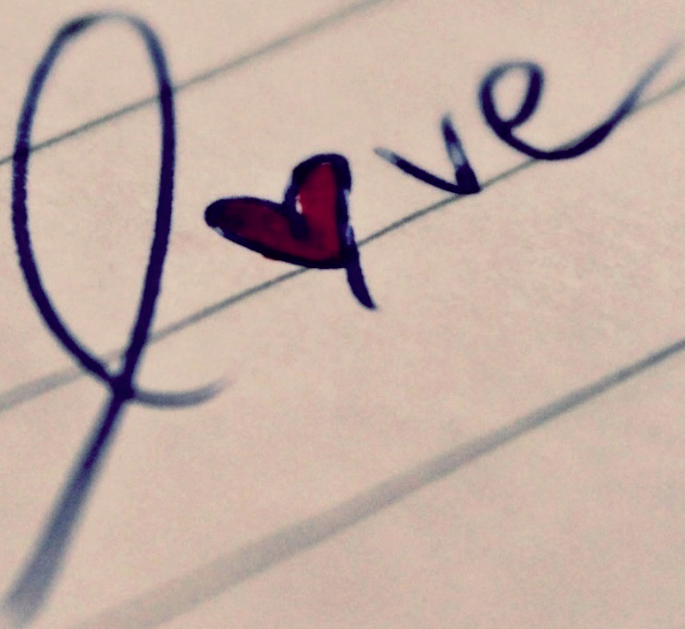 l❤ve